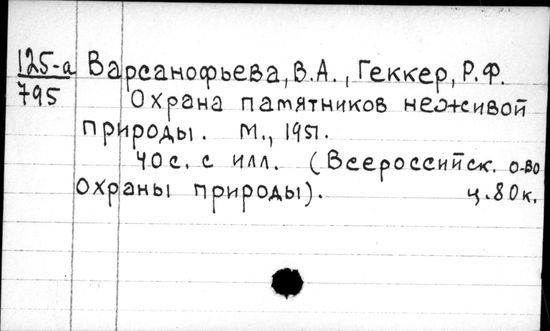 125-а Варсанофьева, В.А., Геккер, Р.Ф.
795
Охрана памятников неживой
природы. М., 1951.
40 с. с илл. (Всероссийск. о-во
охраны природы). ц. 80 к.